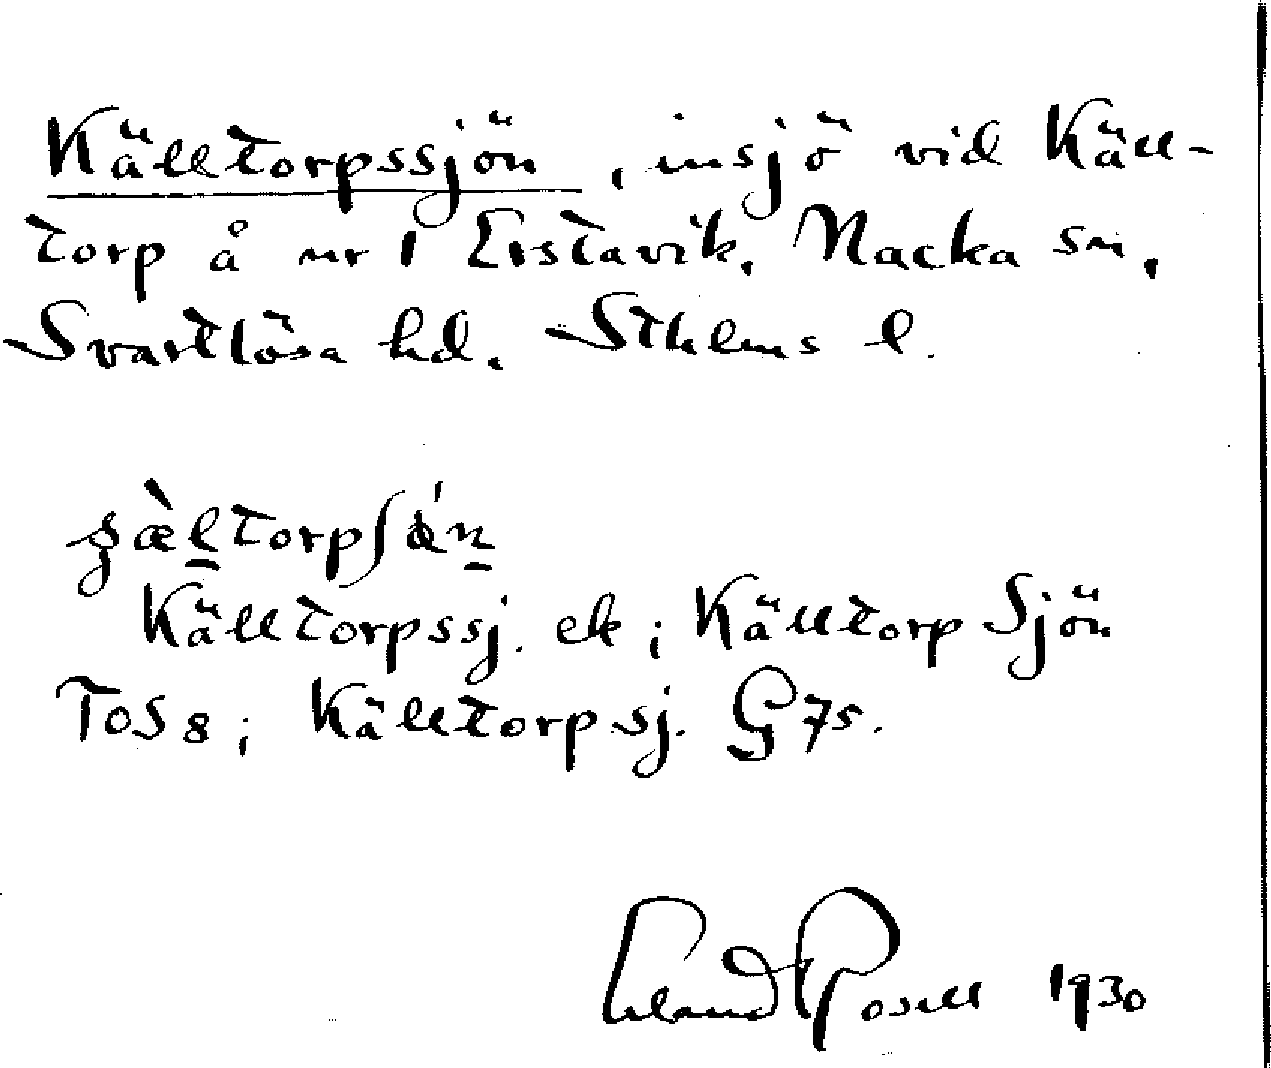 Källtorpssjön, insjö vid Käll-
torp å nr 1 Erstavik, Nacka sn,
Svartlösa hd, Sthlms l.
Källtorpssj. ek; Källtorp Sjön
TOS 8; Källtorpsj. G 75.
Erland Rosell 1930